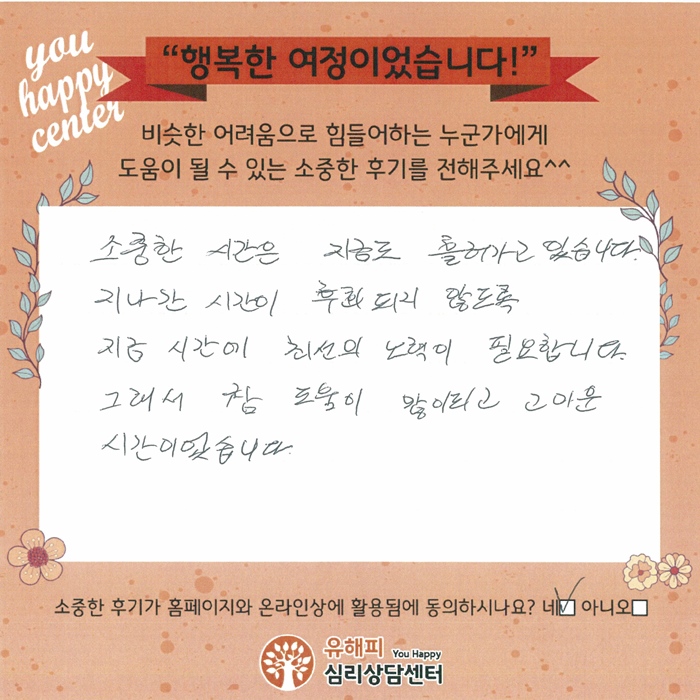 you
happy
center
“행복한 여정이었습니다!”
비슷한 어려움으로 힘들어하는 누군가에게
도움이 될 수 있는 소중한 후기를 전해주세요^^
소중한 시간은 지금도 흘러가고 있습니다.
지나간 시간이 후회되지 않도록
지금 시간에 최선의 노력이 필요합니다.
그래서 참 도움이 많이되고 고마운
시간이였습니다.
소중한 후기가 홈페이지와 온라인상에 활용됨에 동의하시나요? 네☑ 아니오☐
유해피 You Happy
심리상담센터